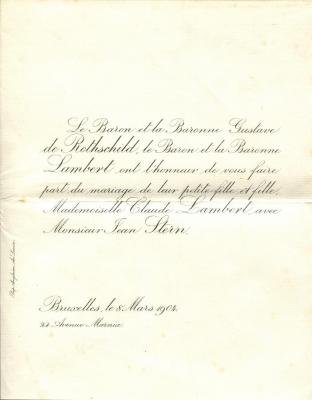 Le Baron et la Baronne Gustave
de Rothschild, le Baron et la Baronne
Lambert ont l'honneur de vous faire
part du mariage de leur petite-fille et fille,
Mademoiselle Claude Lambert, avec
Monsieur Jean Stern.
Bruxelles, le 8 Mars 1904.
24 Avenue Marnix.